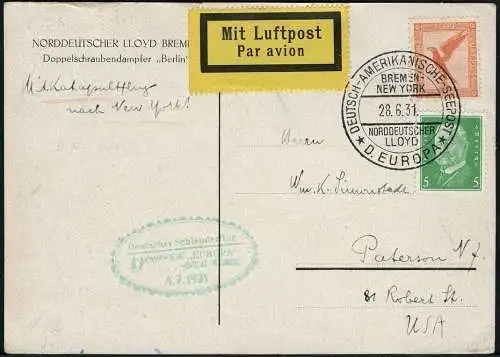 NORDDEUTSCHER LLOYD BREM
Doppelschraubendampfer „Berlin"
Mit Katapultflug
nach New York!
Mit Luftpost
Par avion
DEUTSCH-AMERIKANISCHE SEEPOST
BREMEN-
NEW YORK
28.6.31.
NORDDEUTSCHER
LLOYD
★ D. EUROPA ★
5 5
Herrn
Wm. K.
Paterson N.J.
81 Robert St.
USA
Deutscher Schleuderflug
"EUROPA"
4.7.1931